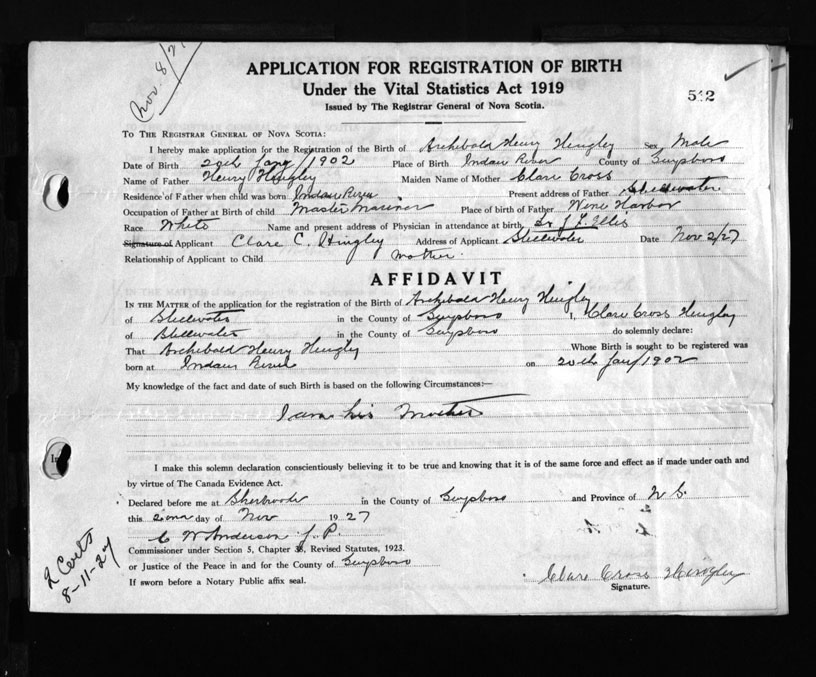 Nov. 8/27
APPLICATION FOR REGISTRATION OF BIRTH
Under the Vital Statistics Act 1919
Issued by The Registrar General of Nova Scotia.
512
TO THE REGISTRAR GENERAL OF NOVA SCOTIA:
I hereby make application for the Registration of the Birth of Archibald Henry Hingley Sex Male
Date of Birth 20th Jany/1902 Place of Birth Indian River County of Guysboro
Name of Father Henry Hingley Maiden Name of Mother Clare Cross
Residence of Father when child was born Indian River Present address of Father Stillwater
Occupation of Father at Birth of child Master Mariner Place of birth of Father Wine Harbor
Race White Name and present address of Physician in attendance at birth Dr J. L. Ellis
Signature of Applicant Clare C. Hingley Address of Applicant Stillwater Date Nov 2/27
Relationship of Applicant to Child Mother.
AFFIDAVIT
IN THE MATTER of the application for the registration of the Birth of Archibald Henry Hingley
of Stillwater in the County of Guysboro I, Clare Cross Hingley
of Stillwater in the County of Guysboro do solemnly declare:
That Archibald Henry Hingley Whose Birth is sought to be registered was
born at Indian River on 20th Jany/1902
My knowledge of the fact and date of such Birth is based on the following Circumstances:—
I am his Mother
I make this solemn declaration conscientiously believing it to be true and knowing that it is of the same force and effect as if made under oath and
by virtue of The Canada Evidence Act.
Declared before me at Sherbrooke in the County of Guysboro and Province of N S.
this 2nd day of Nov 1927
C W Anderson J. P.
Commissioner under Section 5, Chapter 38, Revised Statutes, 1923.
or Justice of the Peace in and for the County of Guysboro
If sworn before a Notary Public affix seal.
Clare Cross Hingley
Signature.
2 Certs
8-11-27